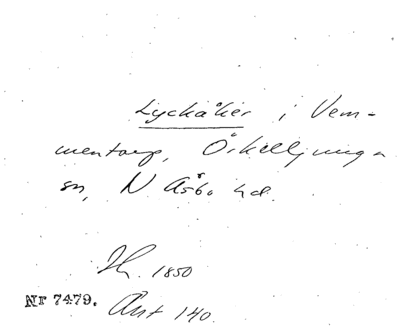 Lyckåker i Vem-
mentorp, Örkelljunga
sn, N Åsbo hd.
Th. 1850
Nr 7479. Ant 140.